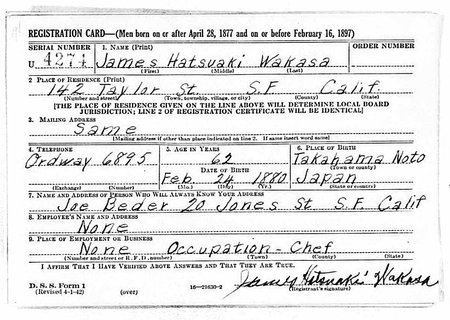 REGISTRATION CARD—(Men born on or after April 28, 1877 and on or before February 16, 1897)
SERIAL NUMBER 1. NAME (Print) ORDER NUMBER
U 4274 James Hatsuaki Wakasa
(First) (Middle) (Last)
2 PLACE OF RESIDENCE (Print)
142 Taylor St. S.F. Calif.
(Number and street) (Town, township, village, or city) (County) (State)
[THE PLACE OF RESIDENCE GIVEN ON THE LINE ABOVE WILL DETERMINE LOCAL BOARD
JURISDICTION; LINE 2 OF REGISTRATION CERTIFICATE WILL BE IDENTICAL]
3. MAILING ADDRESS
Same
[Mailing address if other than place indicated on line 2. If same insert word same]
4. TELEPHONE 5. AGE IN YEARS 6. PLACE OF BIRTH
Ordway 6895 62 Takahama Noto
DATE OF BIRTH (Town or county)
Feb. 24 1880 Japan
(Exchange) (Number) (Mo.) (Day) (Yr.) (State or country)
7. NAME AND ADDRESS OF PERSON WHO WILL ALWAYS KNOW YOUR ADDRESS
Joe Beder 20 Jones St. S.F. Calif
8. EMPLOYER'S NAME AND ADDRESS
None
9. PLACE OF EMPLOYMENT OR BUSINESS
None Occupation - Chef
(Number and street or R. F. D. number) (Town) (County) (State)
I AFFIRM THAT I HAVE VERIFIED ABOVE ANSWERS AND THAT THEY ARE TRUE.
D. S. S. Form 1 James Hatsuaki Wakasa
(Revised 4-1-42) (over) 16—21630-2 (Registrant's signature)